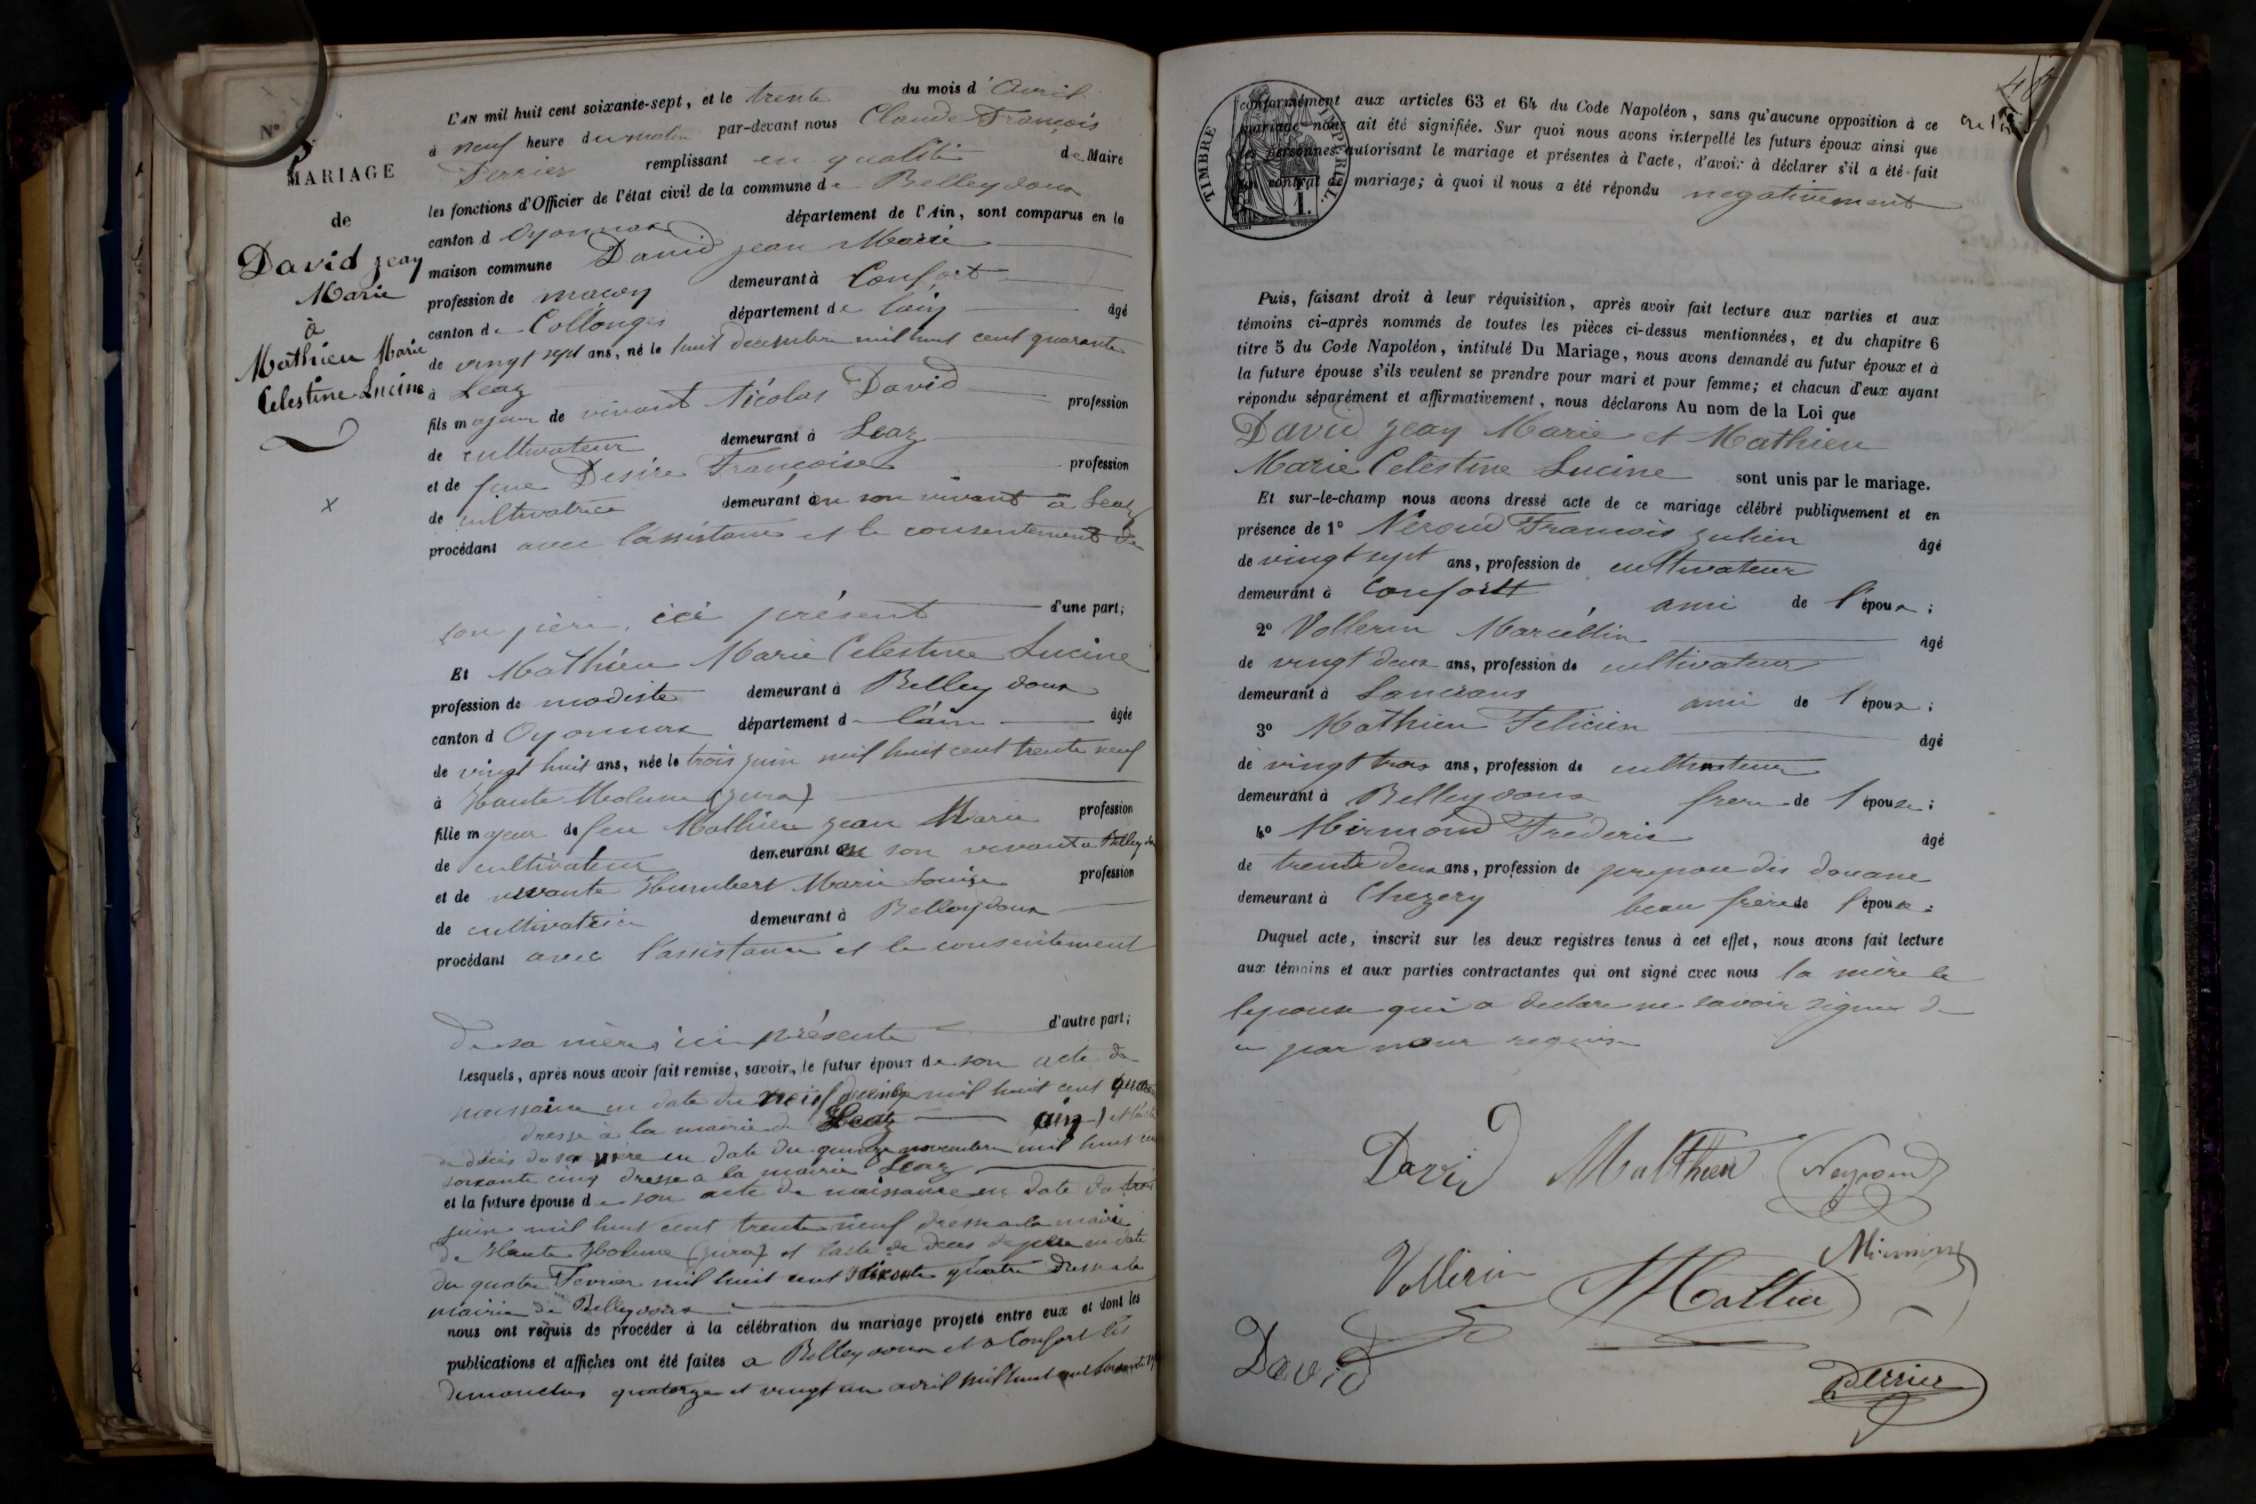 N° 5
MARIAGE
de
David jean
Marie
à
Mathieu Marie
Celestine Lucine
L'AN mil huit cent soixante-sept, et le trente du mois d'Avril
à neuf heure du matin par-devant nous Claude François
Perrier remplissant en qualité de Maire
les fonctions d'Officier de l'état civil de la commune de Belleydoux
canton d Oyonnax département de l'Ain, sont comparus en la
maison commune David jean Marie
profession de maçon demeurant à Confort
canton de Collonges département de l'ain âgé
de vingt sept ans, né le huit decembre mil huit cent quarante
à Leaz
fils majeur de vivant Nicolas David profession
de cultivateur demeurant à Leaz
et de feue Desire Françoise profession
de cultivatrice demeurant à en son vivant à Leaz
procédant avec l'assistance et le consentement de
son père, ici présent d'une part;
Et Mathieu Marie Celestine Lucine
profession de modiste demeurant à Belleydoux
canton d Oyonnax département de l'ain âgée
de vingt huit ans, née le trois juin mil huit cent trente neuf
à Haute Molune (jura)
fille majeur de feu Mathieu jean Marie profession
de cultivateur demeurant en son vivant a Belleydoux
et de vivante Humbert Marie Louise profession
de cultivatrice demeurant à Belleydoux
procédant avec l'assistance et le consentement
de sa mère, ici présente d'autre part;
Lesquels, après nous avoir fait remise, savoir, le futur époux de son acte de
naissance en date du decembre mil huit cent
dressé à la mairie de Leaz ain) et
de décès de sa mère en date du quinze novembre mil huit
soixante cinq dressé a la mairie Leaz
et la future épouse de son acte de naissance en date du trois
juin mil huit cent trente neuf dressé a la mairie
de Haute Molune (jura) et l'acte de deces de père en date
du quatre Fevrier mil huit cent soixante quatre dressé a la
mairie de Belleydoux
nous ont requis de procéder à la célébration du mariage projeté entre eux et dont les
publications et affiches ont été faites a Belleydoux et a Confort les
dimanches quatorze et vingt un avril mil huit cent soixante
TIMBRE IMPERIAL
1.
conformément aux articles 63 et 64 du Code Napoléon, sans qu'aucune opposition à ce
mariage nous ait été signifiée. Sur quoi nous avons interpellé les futurs époux ainsi que
les personnes autorisant le mariage et présentes à l'acte, d'avoir à déclarer s'il a été fait
un contrat de mariage; à quoi il nous a été répondu negativement
Puis, faisant droit à leur réquisition, après avoir fait lecture aux parties et aux
témoins ci-après nommés de toutes les pièces ci-dessus mentionnées, et du chapitre 6
titre 5 du Code Napoléon, intitulé Du Mariage, nous avons demandé au futur époux et à
la future épouse s'ils veulent se prendre pour mari et pour femme; et chacun d'eux ayant
répondu séparément et affirmativement, nous déclarons Au nom de la Loi que
David jean Marie et Mathieu
Marie Celestine Lucine sont unis par le mariage.
Et sur-le-champ nous avons dressé acte de ce mariage célébré publiquement et en
présence de 1° Neroud Francois julien âgé
de vingt sept ans, profession de cultivateur
demeurant à Confort ami de l'époux;
2° Vollerin Marcellin âgé
de vingt deux ans, profession de cultivateur
demeurant à Lancrans ami de l'époux;
3° Mathieu Felicien âgé
de vingt trois ans, profession de cultivateur
demeurant à Belleydoux frere de l'épouse;
4° Mermond Frederic âgé
de trente deux ans, profession de preposé des douane
demeurant à Chezery beau frère de l'époux;
Duquel acte, inscrit sur les deux registres tenus à cet effet, nous avons fait lecture
aux témoins et aux parties contractantes qui ont signé avec nous la mère de
qui a declaré ne savoir signer de
ce par nous requise
David Matthieu Neyroud
Vollerin Mathieu
David Perrier